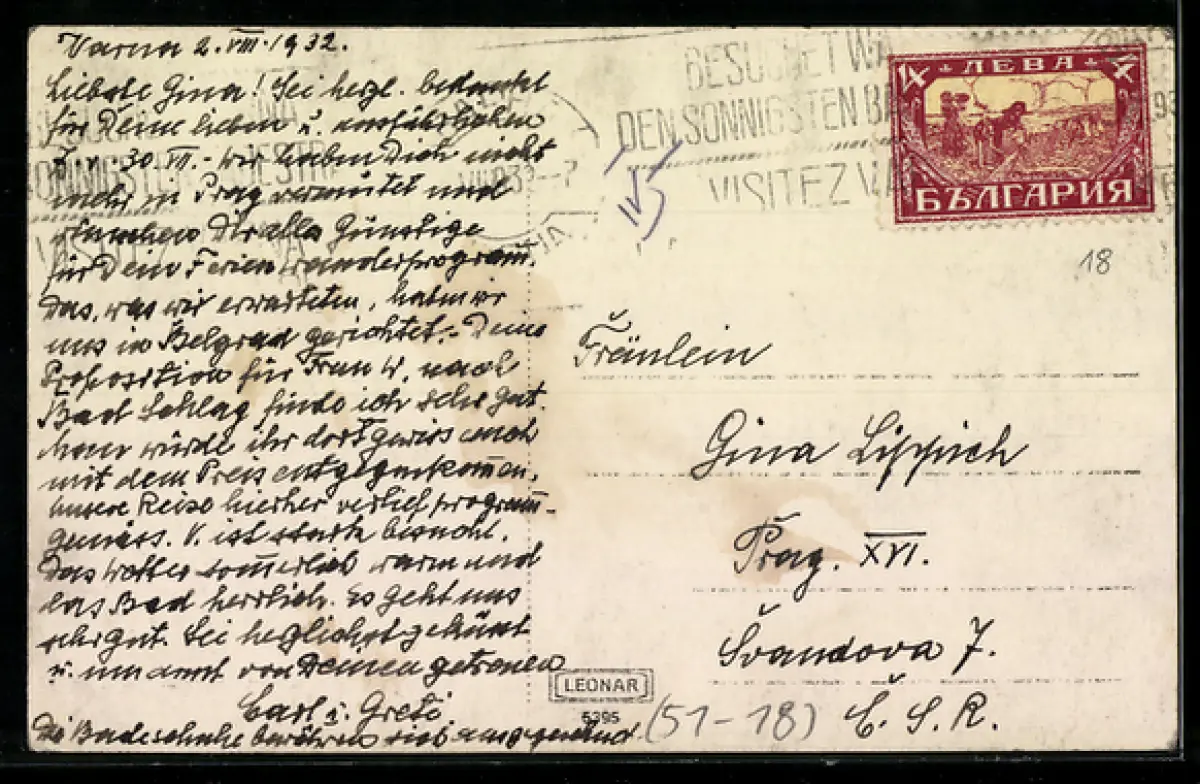 Varna 2. VIII. 1932.
Liebste Gina! Sei herzl. bedankt
für Deine lieben u. ausführlichen
Z. v. 30. VII. - wir haben Dich nicht
mehr in Prag vermutet und
wünschen Dir alles Günstige
für Dein Ferienwanderprogram̄.
Das, was wir erwarteten, haben wir
uns in Belgrad gerichtet. - Deine
Proposition für Frau W. nach
Bad Schlag finde ich sehr gut.
Man würde ihr dort gewiss auch
mit dem Preis entgegenkom̄en.
Unsere Reise hierher verlief program̄-
gemäss. V. ist stark besucht.
Das Wetter som̄erlich warm und
das Bad herrlich. Es geht uns
sehr gut. Sei herzlichst geküsst
u. umarmt von Deinen getreuen
Carl u. Greti
Die Badeschuhe bewähren sich ausgezeichnet
BESUCHET WA
DEN SONNIGSTEN BA
VISITEZ VA
1 ЛЕВА
БЪЛГАРИЯ
18
Fräulein
Gina Lippich
Prag. XVI.
Švandova 7.
Č. S. R.
LEONAR
5395
(51-18)